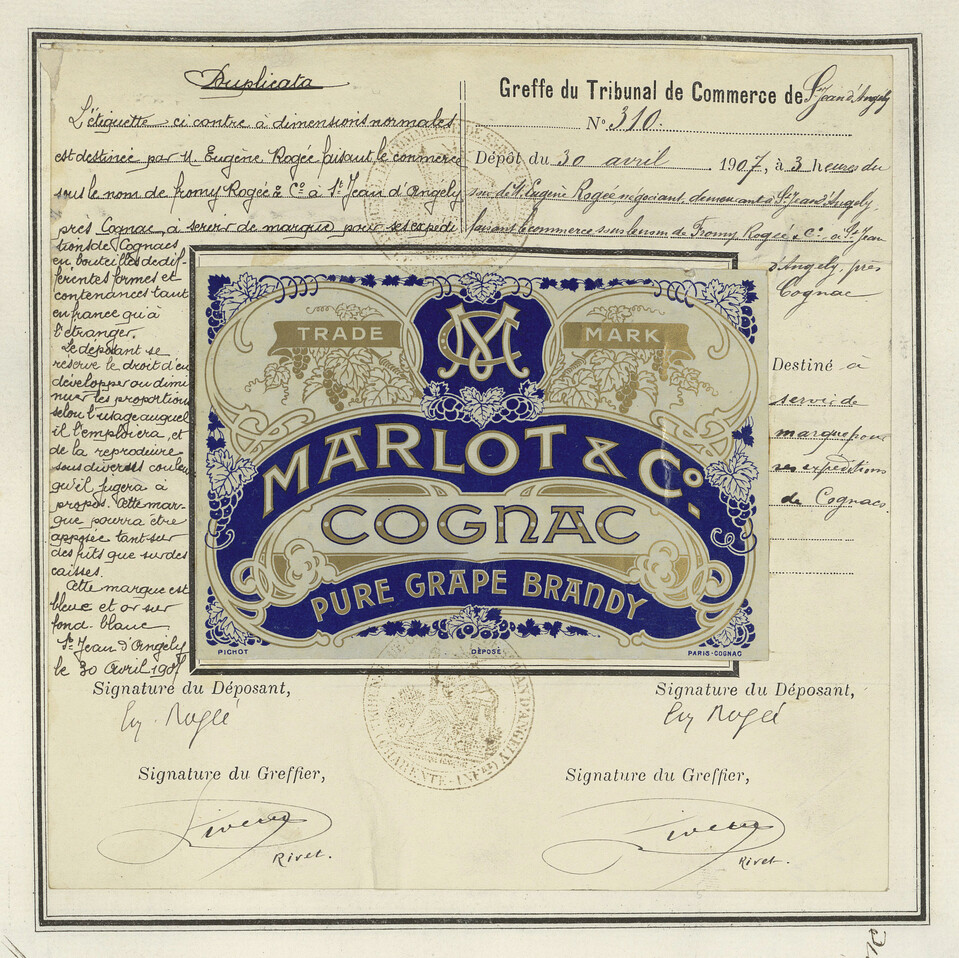 Duplicata
L'étiquette ci contre à dimensions normales
est destinée par M. Eugène Rogée faisant le commerce
sous le nom de fromy Rogée & Cº à St Jean d'Angely
près Cognac, à servir de marque pour ses expédi
tions de Cognacs
en bouteilles de dif-
férentes formes et
contenances tant
en france qu'à
l'étranger.
Le déposant se
réserve le droit d'en
développer ou dimi
nuer les proportions
selon l'usage auquel
il l'emploiera, et
de la reproduire
sous diverses couleurs
qu'il jugera à
propos. Cette mar-
que pourra être
apposée tant sur
des fûts que sur des
caisses.
Cette marque est
bleue et or sur
fond blanc
St Jean d'Angély
le 30 Avril 1907
Greffe du Tribunal de Commerce de St Jean d'Angely
Nº 310.
Dépôt du 30 avril 1907, à 3 heures du
soir de M. Eugène Rogée négociant demeurant à St Jean d'Angely,
faisant le commerce sous le nom de Fromy Rogée & Cº, à St Jean
d'Angely, près
Cognac
Destiné à
servir de
marque pour
ses expéditions
de Cognacs.
TRADE MARK
MC
MARLOT & Cº.
COGNAC
PURE GRAPE BRANDY
PICHOT DÉPOSÉ PARIS-COGNAC
Signature du Déposant, Signature du Déposant,
Eug. Rogée Eug Rogée
Signature du Greffier, Signature du Greffier,
Rivet Rivet
Rivet. Rivet.